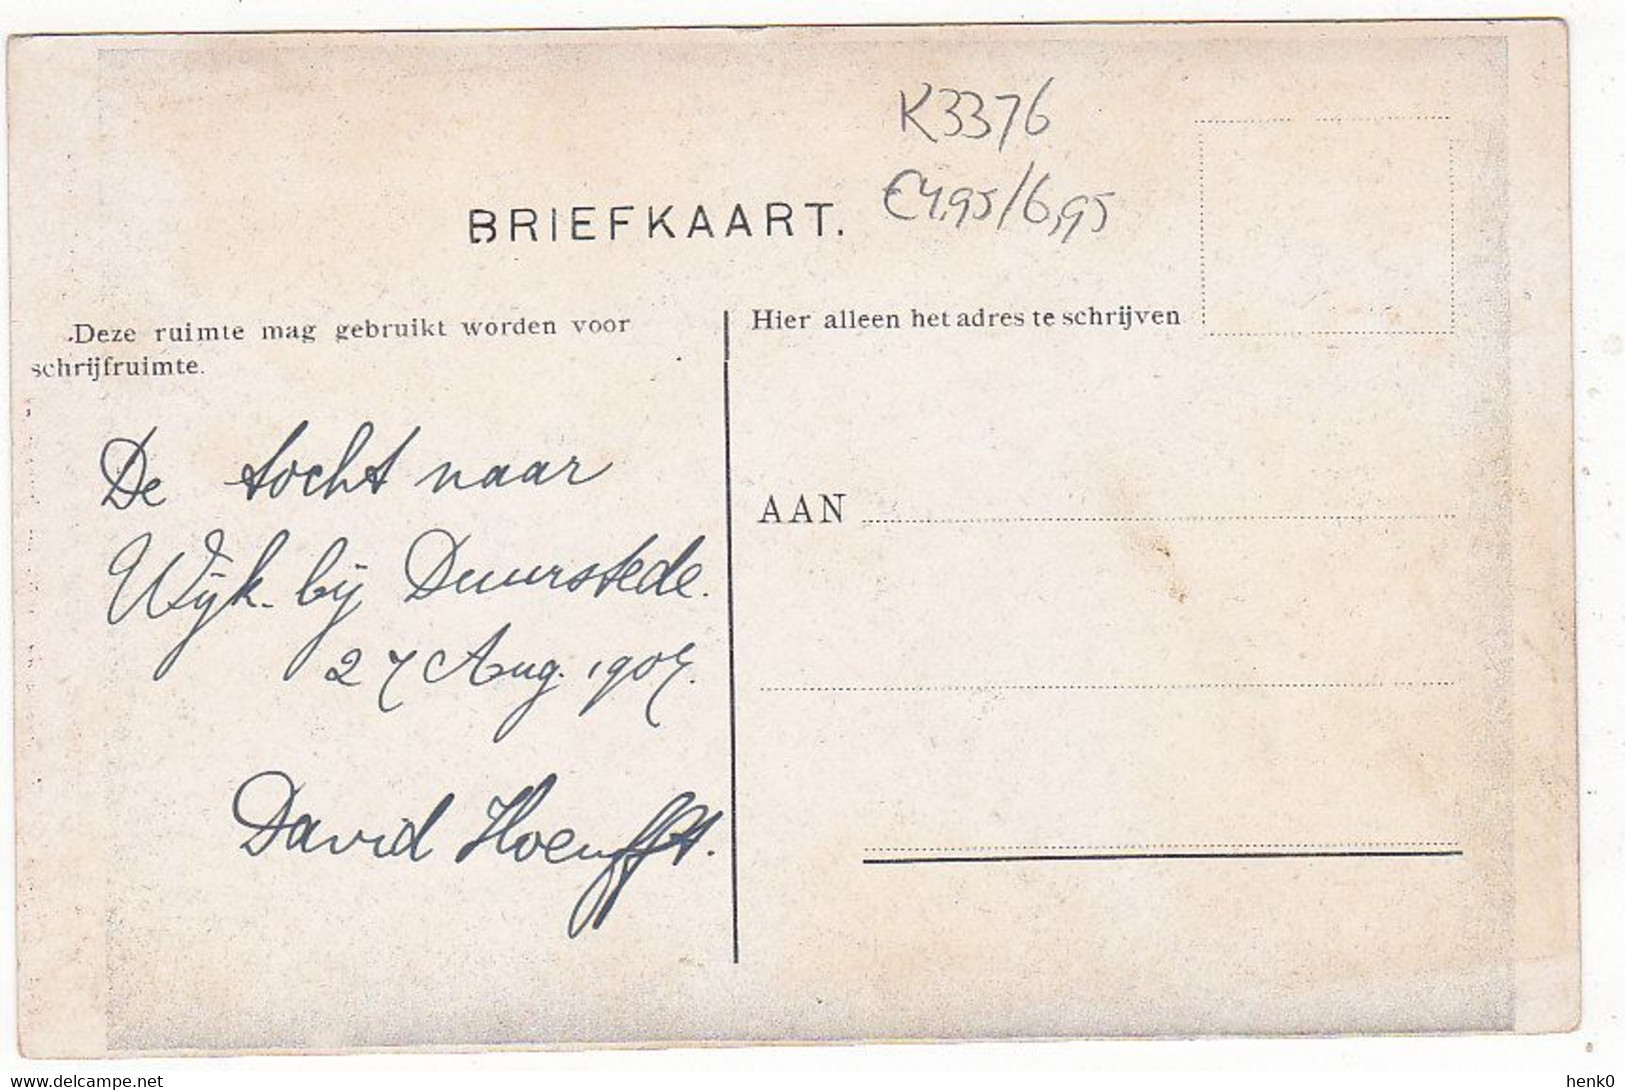 K3376
€4,95/6,95
BRIEFKAART.
Deze ruimte mag gebruikt worden voor
schrijfruimte.
Hier alleen het adres te schrijven
De tocht naar
Wijk bij Duurstede.
27 Aug. 1907.
David Hoeufft.
AAN
www.delcampe.net
henk0